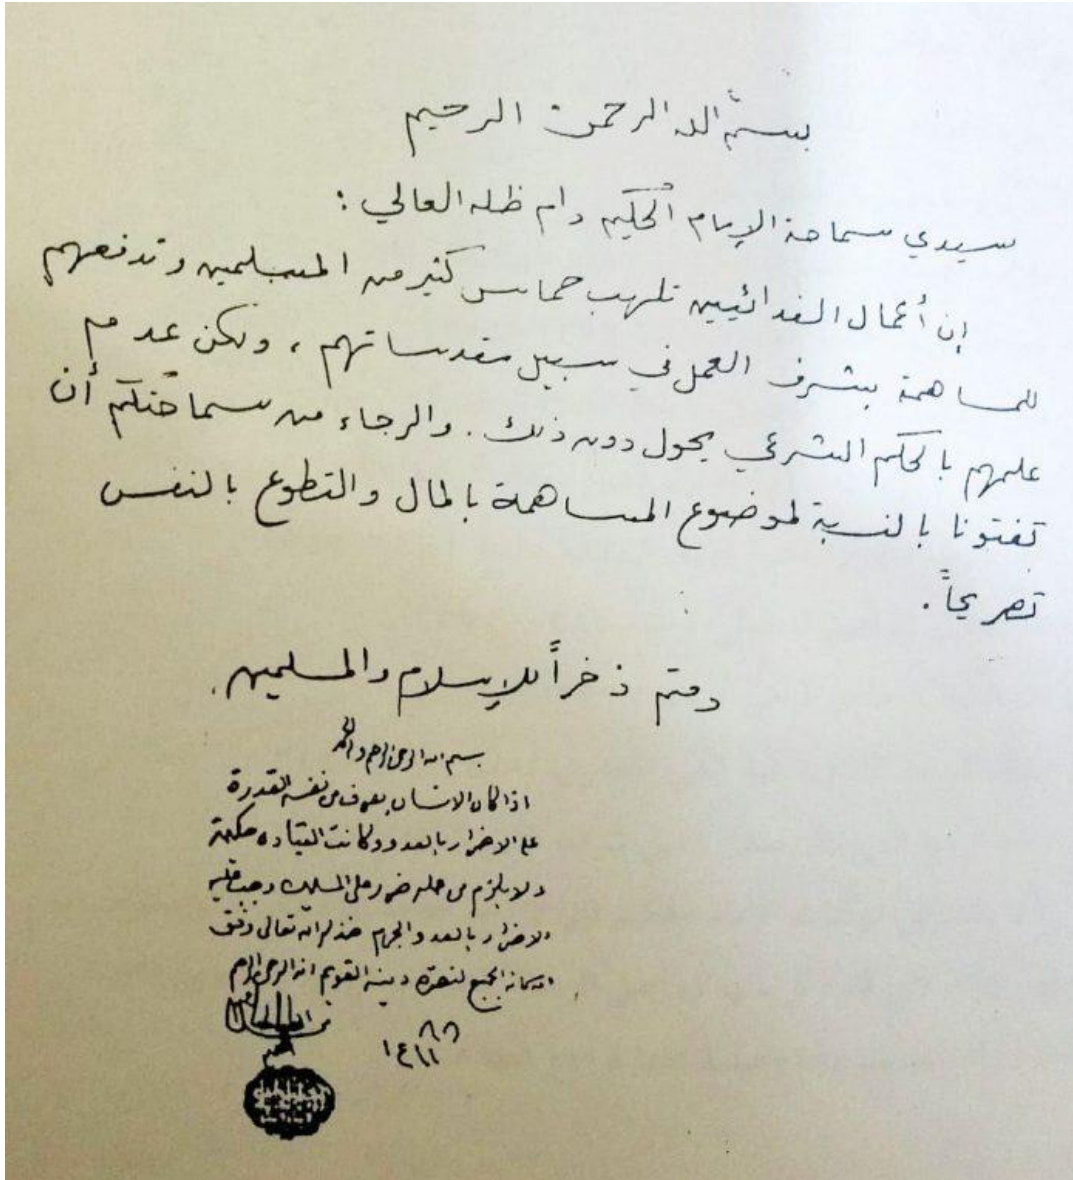 بسم الله الرحمن الرحيم
سيدي سماحة الإمام الحكيم دام ظله العالي :
إن أعمال الفدائيين تلهب حماس كثير من المسلمين وتدفعهم
للمساهمة بشرف العمل في سبيل مقدساتهم ، ولكن عدم
علمهم بالحكم الشرعي يحول دون ذلك . والرجاء من سماحتكم أن
تفتونا بالنسبة لموضوع المساهمة بالمال والتطوع بالنفس
تصريحاً .
دمتم ذخراً للإسلام والمسلمين .
بسم الله الرحمن الرحيم وله الحمد
اذا كان الانسان يعرف من نفسه القدرة
على الاضرار بالعدو وكانت القيادة حكيمة
ولا يلزم من عمله ضرر على المسلمين وجب عليه
الاضرار بالعدو المجرم خذله الله تعالى ووفق
الله سبحانه الجميع لنصرة دينه القويم انه الرحمن الرحيم